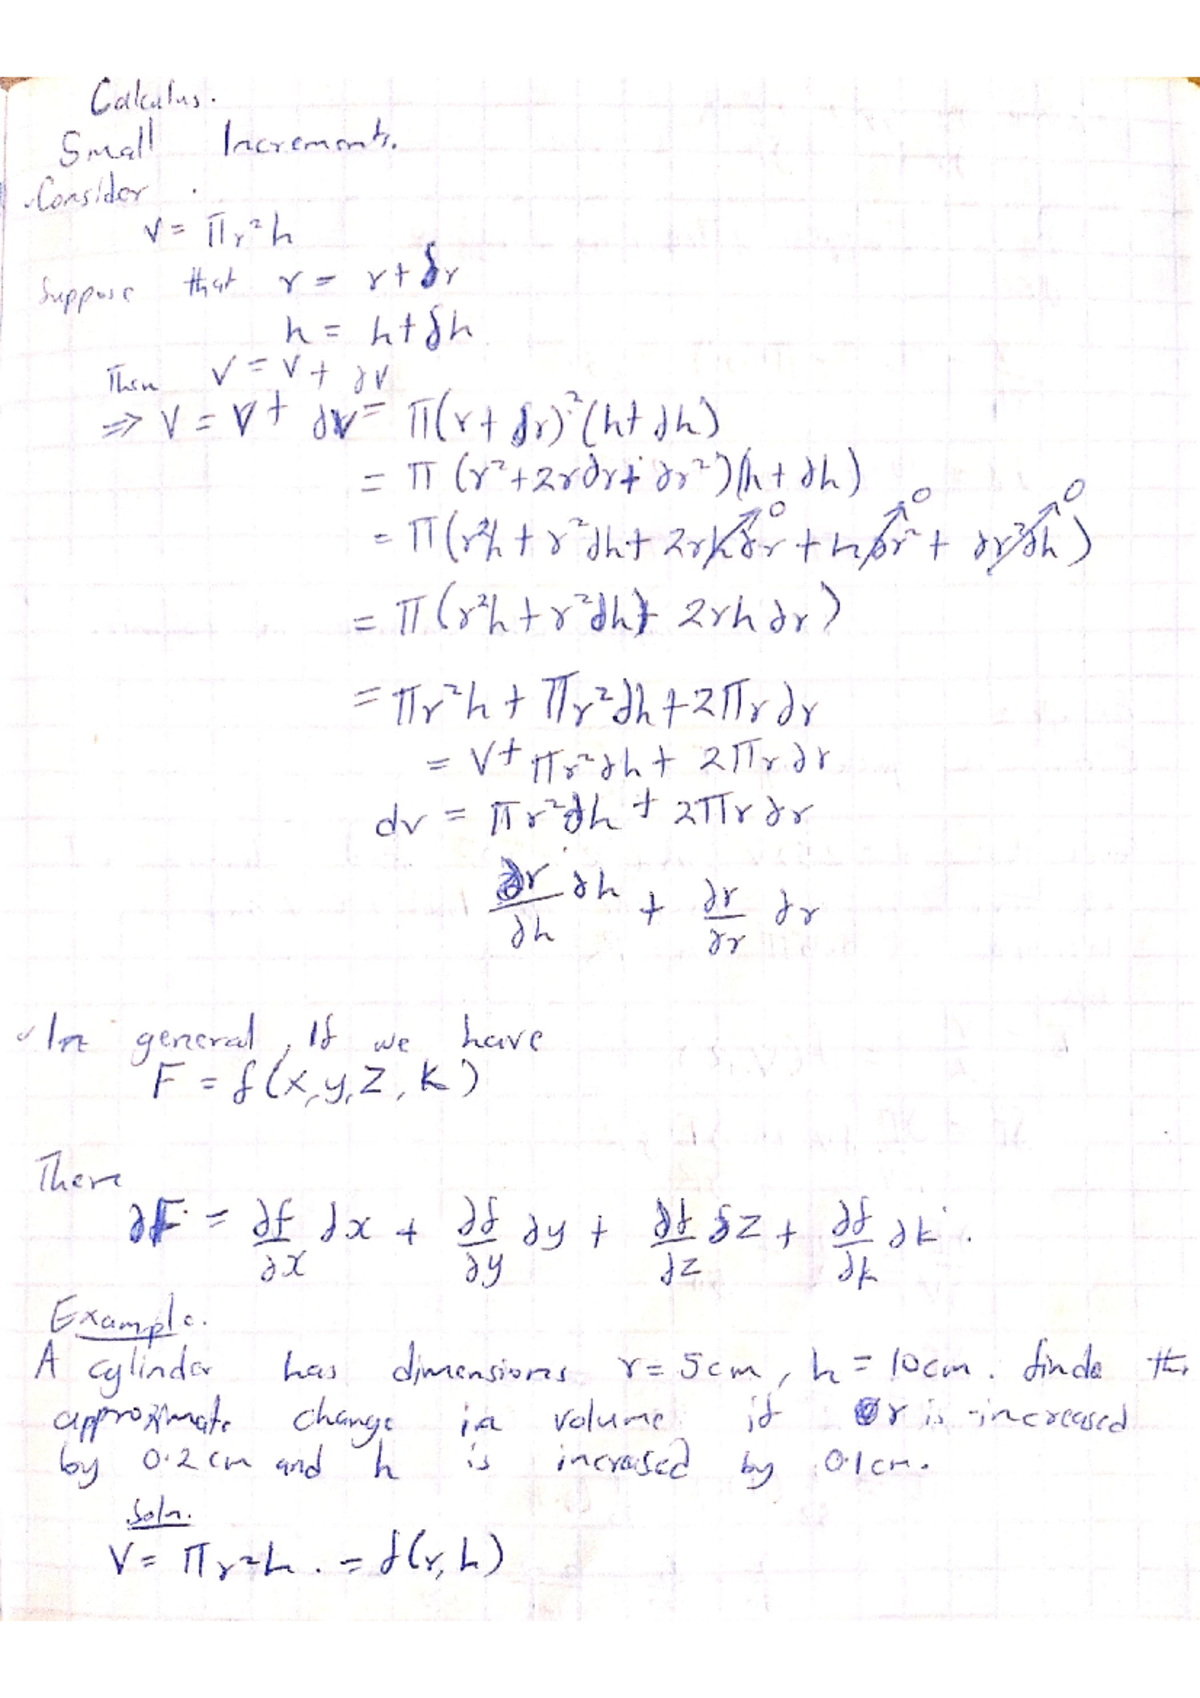 Calculus.
Small Increments.
Consider
V = πr²h
Suppose that r = r + δr
h = h + δh
Then V = V + ∂V
⇒ V = V + ∂V = π(r + δr)²(h + ∂h)
= π(r² + 2r∂r + ∂r²)(h + ∂h)
= π(r²h + r²∂h + 2rh∂r + h∂r² + ∂r²∂h)
= π(r²h + r²∂h + 2rh∂r)
= πr²h + πr²∂h + 2πr∂r
= V + πr²∂h + 2πr∂r
dv = πr²∂h + 2πr∂r
∂r/∂h ∂h + ∂r/∂r ∂r
In general, If we have
F = f(x, y, z, k)
There
∂F = ∂f/∂x ∂x + ∂f/∂y ∂y + ∂f/∂z δz + ∂f/∂k ∂k.
Example.
A cylinder has dimensions r = 5cm, h = 10cm. finde the
approximate change in volume if r is increased
by 0.2cm and h is increased by 0.1cm.
Soln.
V = πr²h. = f(r, h)